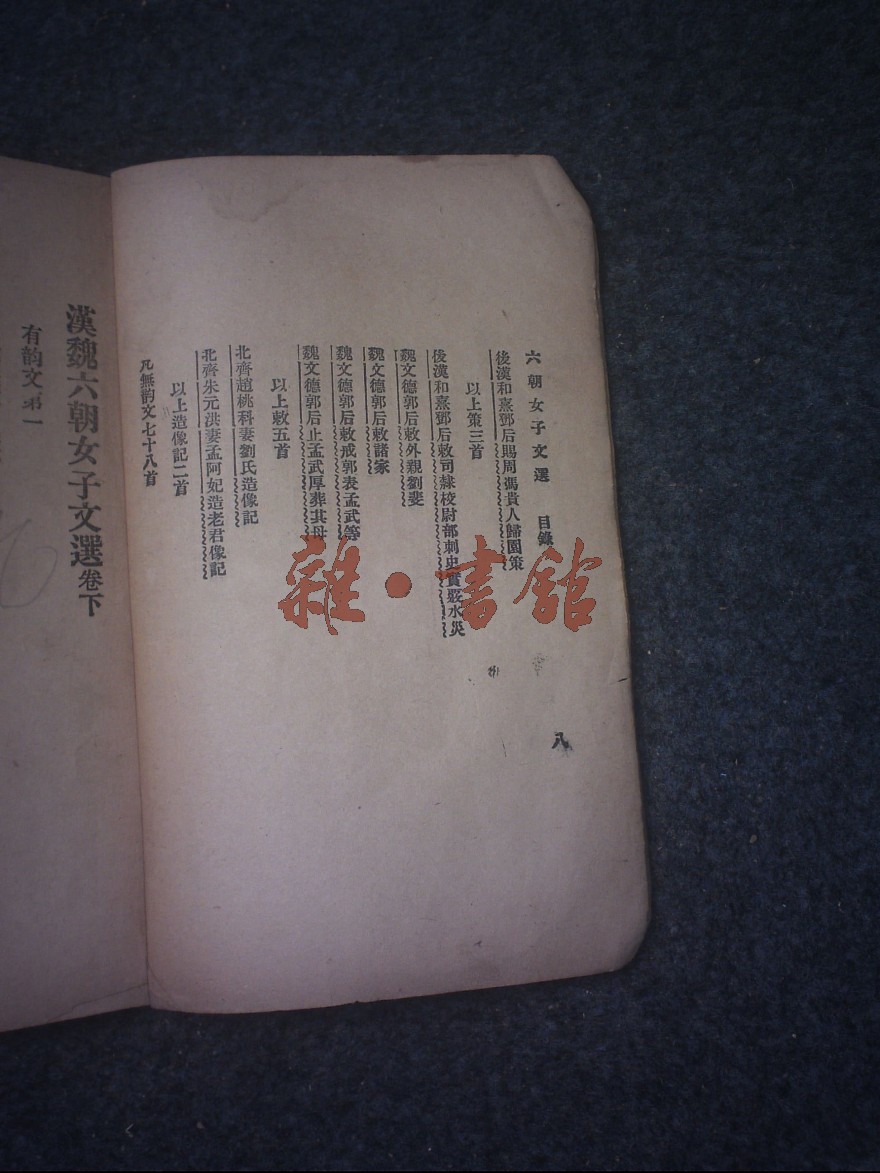 六朝女子文選 目錄
八
後漢和熹鄧后賜周馮貴人歸園策
以上策三首
後漢和熹鄧后敕司隸校尉部刺史實覈水災
魏文德郭后敕外親劉斐
魏文德郭后敕諸家
魏文德郭后敕戒郭表孟武等
魏文德郭后止孟武厚葬其母
以上敕五首
北齊趙桃科妻劉氏造像記
北齊朱元洪妻孟阿妃造老君像記
以上造像記二首
凡無韵文七十八首
漢魏六朝女子文選卷下
有韵文弟一
雜·書館